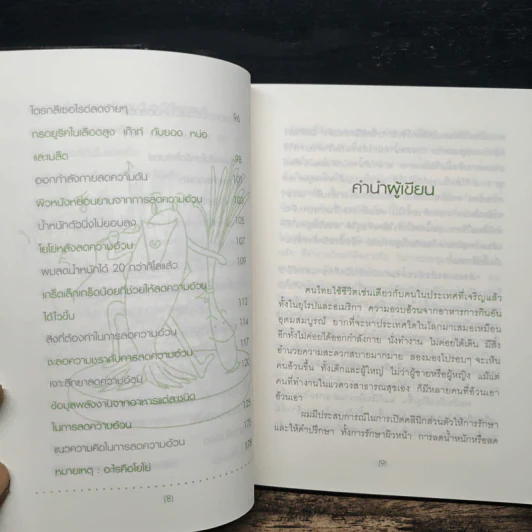 ไตรกลีเซอไรด์ลดง่ายๆ 96
กรดยูริคในเลือดสูง เก๊าท์ กับยอด หน่อ
และเมล็ด 98
ออกกำลังกายลดความดัน
ผิวหนังหย่อนยานจากการลดความอ้วน
น้ำหนักตัวนิ่งไม่ยอมลง 105
โยโย่หลังลดความอ้วน 107
ผมลดน้ำหนักได้ 20 กว่ากิโลแล้ว 109
เกร็ดเล็กเกร็ดน้อยที่ช่วยให้ลดความอ้วน
ได้ไวขึ้น 112
สิ่งที่ต้องทำในการลดความอ้วน
ชะลอความชราด้วยการลดความอ้วน
เจาะลึกยาลดความอ้วน
ข้อมูลพลังงานจากอาหารแต่ละชนิด
ในการลดความอ้วน
แนวความคิดในการลดความอ้วน
หมายเหตุ : อะไรคือโยโย่
(8)
คำนำผู้เขียน
คนไทยใช้ชีวิตเช่นเดียวกับคนในประเทศที่เจริญแล้ว
ทั้งในยุโรปและอเมริกา ความอวบอ้วนจากอาหารการกินอัน
อุดมสมบูรณ์ ยากที่จะหาประเทศใดในโลกมาเสมอเหมือน
อีกทั้งไม่ค่อยได้ออกกำลังกาย นั่งทำงาน ไม่ค่อยได้เดิน มีสิ่ง
อำนวยความสะดวกสบายมากมาย ลองมองไปรอบๆ จะเห็น
คนอ้วนขึ้น ทั้งเด็กและผู้ใหญ่ ไม่ว่าผู้ชายหรือผู้หญิง แม้แต่
คนที่ทำงานในแวดวงสาธารณสุขเอง ก็มีหลายคนที่อ้วนเอา
อ้วนเอา
ผมมีประสบการณ์ในการเปิดคลินิกส่วนตัวให้การรักษา
และให้คำปรึกษา ทั้งการรักษาผิวหน้า การลดน้ำหนักหรือลด
(9)